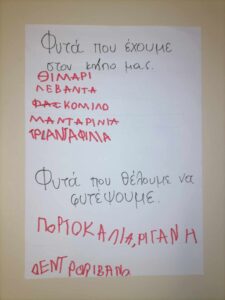 Φυτά που έχουμε
στον κήπο μας.
ΘΙΜΑΡΙ
ΛΕΒΑΝΤΑ
ΦΑΣΚΟΜΙΛΟ
ΜΑΝΤΑΡΙΝΙΑ
ΤΡΙΑΝΤΑΦΙΛΙΑ
Φυτά που θέλουμε να
φυτέψουμε.
ΠΟΡΤΟΚΑΛΙΑ, ΡΙΓΑΝΗ
ΔΕΝΤΡΟΛΙΒΑΝΟ